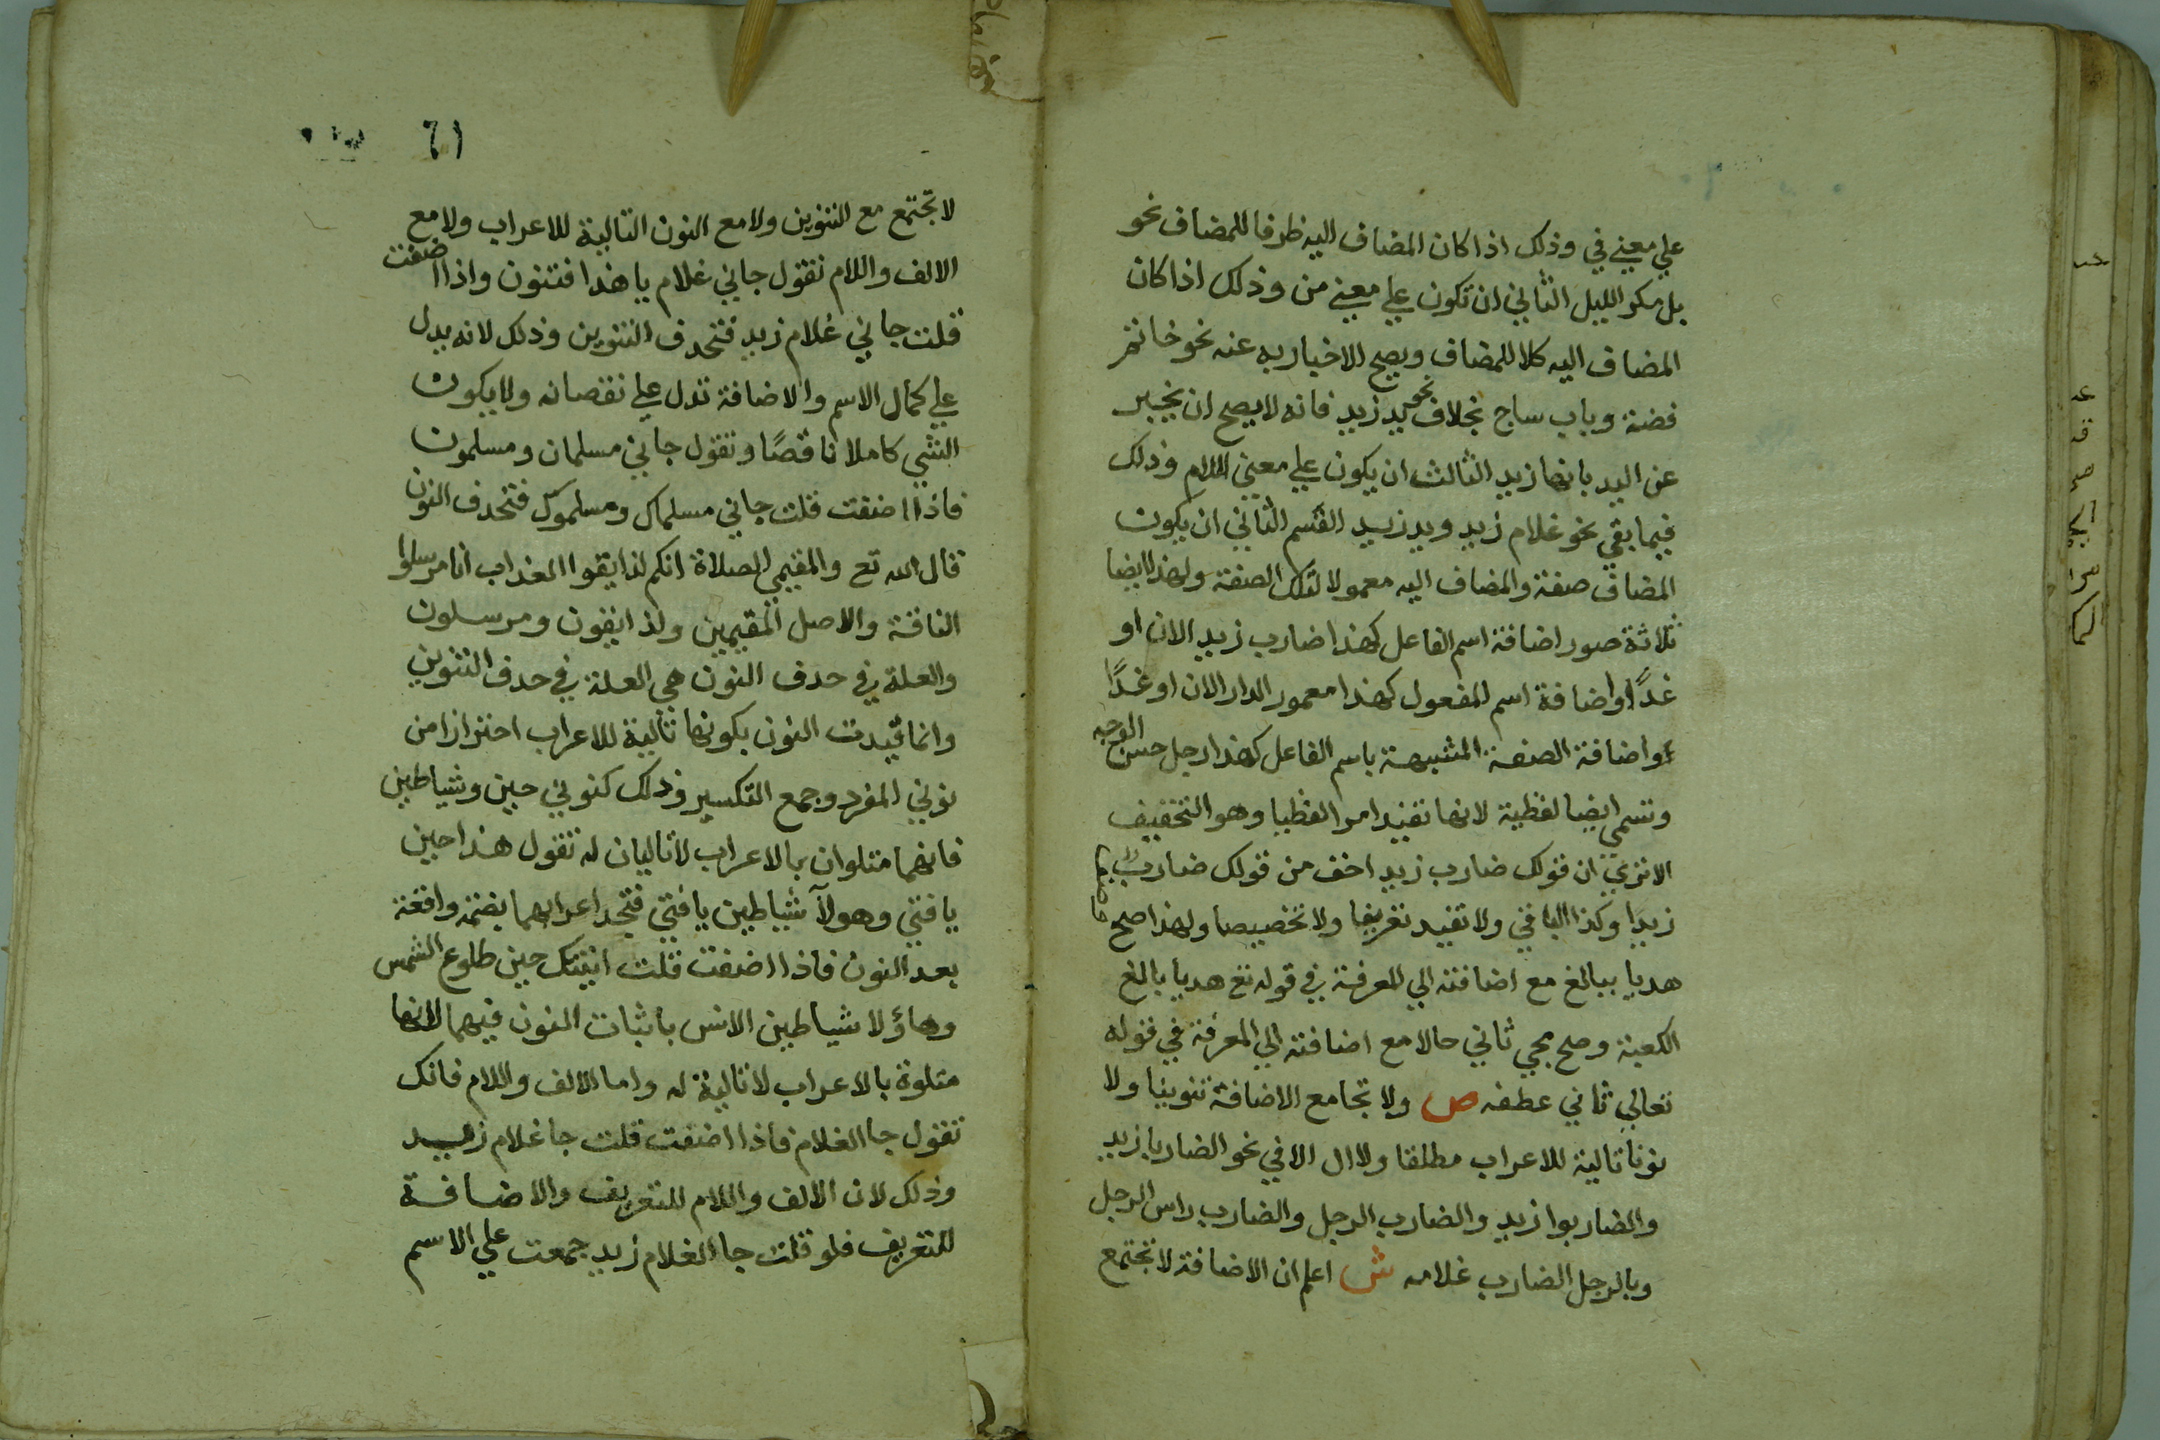 علي معني في وذلك اذا كان المضاف اليه ظرفا للمضاف نحو
بل مكر الليل الثاني ان تكون علي معني من وذلك اذا كان
المضاف اليه كلا للمضاف ويصح الاخبار به عنه نحو خاتم
فضة وباب ساج بخلاف نحو يد زيد فانه لا يصح ان يخبر
عن اليد بانها زيد الثالث ان يكون علي معني اللام وذلك
فيما بقي نحو غلام زيد ويد زيد القسم الثاني ان يكون
المضاف صفة والمضاف اليه معمولا لتلك الصفة ولهذا ايضا
ثلاثة صور اضافة اسم الفاعل كهذا ضارب زيد الان او
غدًا او اضافة اسم المفعول كهذا معمور الدار الان او غدًا
او اضافة الصفة المشبهة باسم الفاعل كهذا رجل حسن الوجه
وتسمي ايضا لفظية لانها تفيد امرا لفظيا وهو التخفيف
الا تري ان قولك ضارب زيد اخف من قولك ضارب
زيدا وكذا الباقي ولا تفيد تعريفا ولا تخصيصا ولهذا صح
هديا ببالغ مع اضافته الي المعرفة في قوله تع هديا بالغ
الكعبة وصح مجي ثاني حالا مع اضافته الي المعرفة في قوله
تعالي ثاني عطفه ص ولا تجامع الاضافة تنوينا ولا
نونا تالية للاعراب مطلقا ولا ال الا في نحو الضاربا زيد
والضاربوا زيد والضارب الرجل والضارب راس الرجل
وبالرجل الضارب غلامه ش اعلم ان الاضافة لا تجتمع
٦١
لا تجتمع مع التنوين ولا مع النون التالية للاعراب ولا مع
الالف واللام تقول جاني غلام يا هذا فتنون واذا اضفت
قلت جاني غلام زيد فتحدف التنوين وذلك لانه يدل
علي كمال الاسم والاضافة تدل علي نقصانه ولا يكون
الشي كاملا ناقصًا وتقول جاني مسلمان ومسلمون
فاذا اضفت قلت جاني مسلماك ومسلموك فتحدف النون
قال الله تع والمقيمي الصلاة انكم لذايقوا العذاب انا مرسلوا
الناقة والاصل المقيمين ولذايقون ومرسلون
والعلة في حدف النون هي العلة في حدف التنوين
وانما قيدت النون بكونها تالية للاعراب احترازا من
نوني المفرد وجمع التكسير وذلك كنوني حين وشياطين
فانهما متلوان بالاعراب لا تاليان له تقول هذا حين
يا فتي وهولآ شياطين يا فتي فتجد اعرابهما بضمة واقعة
بعد النون فاذا اضفت قلت اتيتك حين طلوع الشمس
وهاؤلا شياطين الانس باثبات النون فيهما لانها
متلوة بالاعراب لا تالية له واما الالف واللام فانك
تقول جا الغلام فاذا اضفت قلت جا غلام زيد
وذلك لان الالف واللام للتعريف والاضافة
للتعريف فلو قلت جا الغلام زيد جمعت علي الاسم